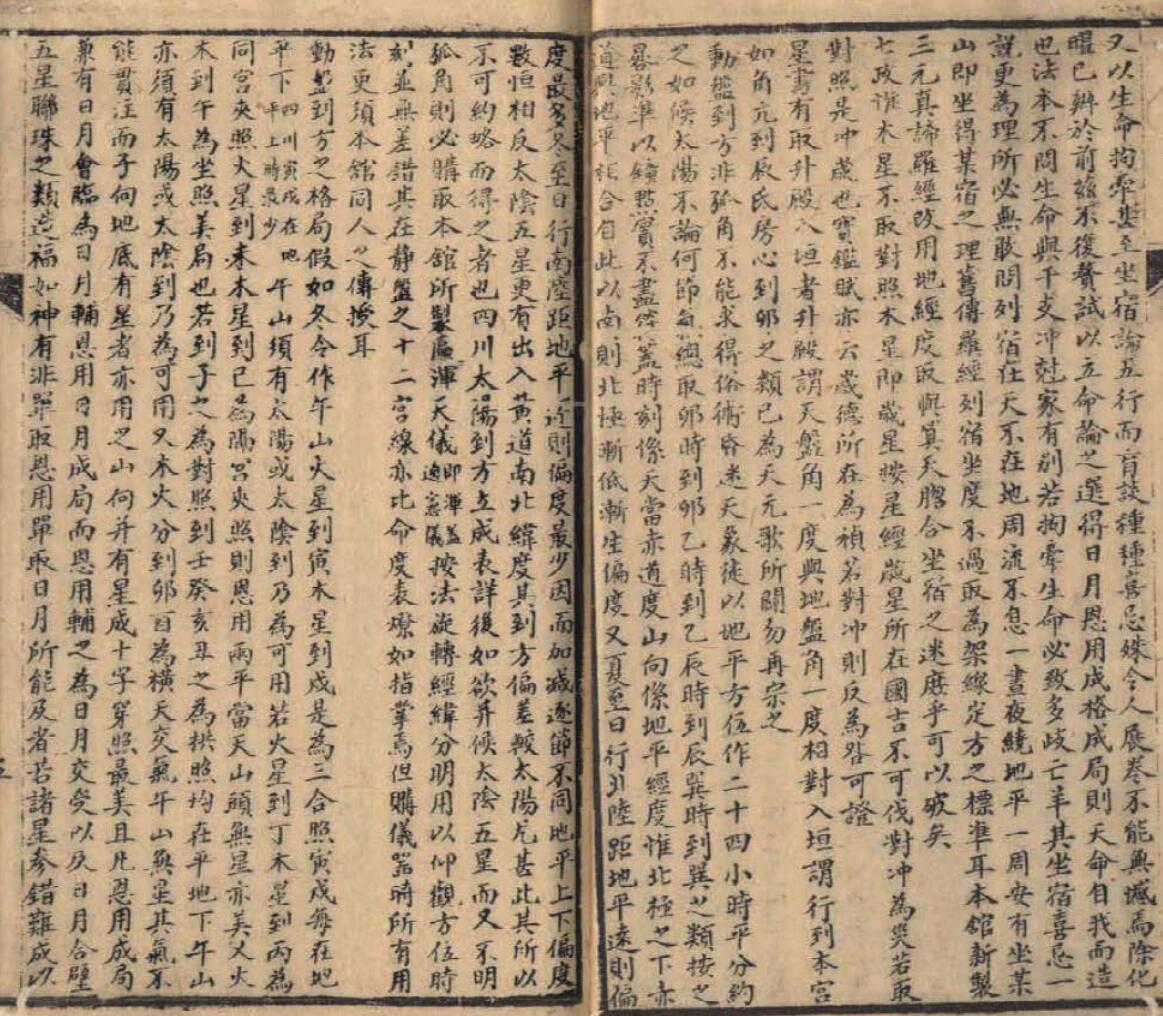 又以生命拘牽甚至坐宿論五行而盲談種種喜忌殊令人展卷不能無憾焉除化
曜已辦於前茲不復贅試以立命論之選得日月恩用成格成局則天命自我而造
也法本不問生命與干支冲尅家有别若拘牽生命必致多歧亡羊其坐宿喜忌一
說更為理所必無敢問列宿在天不在地周流不息一晝夜繞地平一周安有坐某
山即坐得某宿之理舊傳羅經列宿坐度不過取為架線定方之標準耳本館新製
三元真諦羅經改用地經度取與真天脗合坐宿之迷庻乎可以破矣
七政誰木星不取對照木星即歲星按星經歲星所在國吉不可伐對冲為災若取
對照是冲歲也寶鑑賦亦云歲德所在為禎若對冲則反為咎可證
星書有取升殿入垣者升殿謂天盤角一度與地盤角一度相對入垣謂行到本宮
如角亢到辰氐房心到卯之類已為天元歌所關勿再宗之
動盤到方非弧角不能求得俗術昏迷天象徒以地平方位作二十四小時平分約
之如候太陽不論何節氣總取卯時到卯乙時到乙辰時到辰巽時到巽之類按之
晷影準以鐘漏實不盡然蓋時刻係天當赤道度山向係地平經度惟北極之下赤
道與地平相合自此以南則北極漸低漸生偏度又夏至日行北陸距地平遠則偏
度最多冬至日行南陸距地平近則偏度最少因而加減逐節不同地平上下偏度
數恒相反太陰五星更有出入黃道南北緯度其到方偏差較太陽尤甚此其所以
不可約略而得之者也四川太陽到方立成表詳後如欲幷候太陰五星而又不明
弧角則必購取本館所製區渾天儀即渾蓋通憲儀按法旋轉經緯分明用以仰觀方位時
刻並無差錯其在靜盤之十二宮線亦比命度表燎如指掌焉但購儀器時所有用
法更須本館同人之傳授耳
動盤到方之格局假如冬令作午山火星到寅木星到戌是為三合照寅戌每在地
平下四川寅戌在地平上時最少午山須有太陽或太陰到乃為可用若火星到丁木星到丙為
同宮夾照火星到未木星到巳為隔宮夾照則恩用兩平當天山頭無星亦美又火
木到午為坐照美局也若到子之為對照到壬癸亥丑之為拱照均在平地下午山
亦須有太陽或太陰到乃為可用又木火分到卯酉為横天交氣午山無星其氣不
能貫注而子向地底有星者亦用之山向并有星成十字穿照最美且凡恩用成局
兼有日月會臨為日月輔恩用日月成局而恩用輔之為日月交受以及日月合璧
五星聯珠之類造福如神有非單取恩用單取日月所能及者若諸星參錯難成以